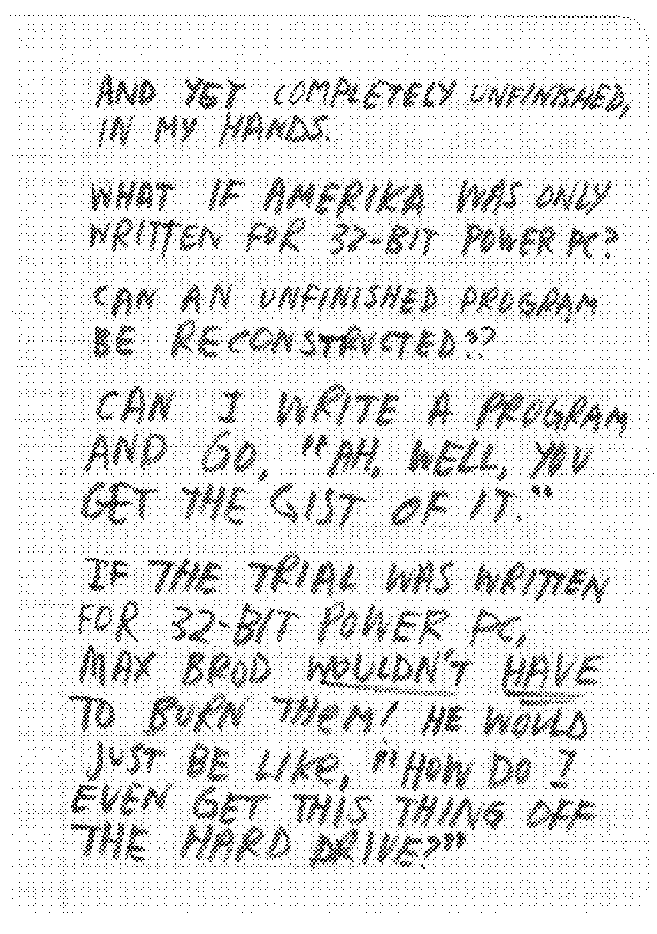 AND YET COMPLETELY UNFINISHED,
IN MY HANDS.
WHAT IF AMERIKA WAS ONLY
WRITTEN FOR 32-BIT POWER PC?
CAN AN UNFINISHED PROGRAM
BE RECONSTRUCTED??
CAN I WRITE A PROGRAM
AND GO, "AH, WELL, YOU
GET THE GIST OF IT."
IF THE TRIAL WAS WRITTEN
FOR 32-BIT POWER PC,
MAX BROD WOULDN'T HAVE
TO BURN THEM! HE WOULD
JUST BE LIKE, "HOW DO I
EVEN GET THIS THING OFF
THE HARD DRIVE?"